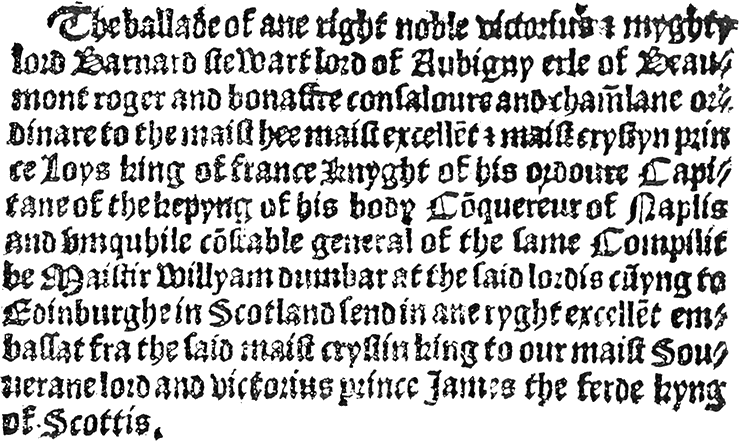 The ballade of ane right noble victorius ⁊ myghty
lord Barnard stewart lord of Aubigny erle of Beau⸗
mont roger and bonaffre consaloure and cham̄lane or⸗
dinare to the maist hee maist excellēt ⁊ maist crystyn prin
ce Loys king of france knyght of his ordoure Capi⸗
tane of the kepyng of his body Cōquereur of Naplis
and vmquhile cōstable general of the same Compilit
be Maistir Willyam dumbar at the said lordis cūyng to
Edinburghe in Scotland send in ane ryght excellēt em⸗
bassat fra the said maist crystin king to our maist Sou⸗
uerane lord and victorius prince James the ferde kyng
of Scottis.